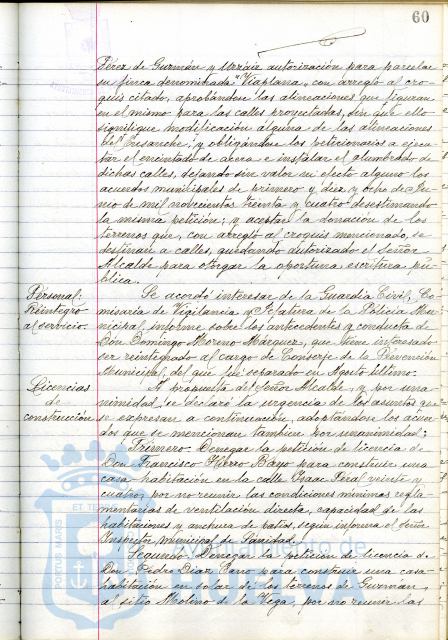 60
Pérez de Guzmán y Urzáiz autorización para parcelar
su finca denominada "Viaplana", con arreglo al cro-
quis citado, aprobándose las alineaciones que figuran
en el mismo para las calles proyectadas, sin que ello
signifique modificación alguna de las alineaciones
del Ensanche; y obligándose los peticionarios a ejecu-
tar el encintado de acera e instalar el alumbrado de
dichas calles, dejando sin valor ni efecto alguno los
acuerdos municipales de primero y diez y ocho de Ju-
nio de mil novecientos treinta y cuatro desestimando
la misma petición; y aceptar la donación de los
terrenos que, con arreglo al croquis mencionado, se
destinan a calles, quedando autorizado el señor
Alcalde para otorgar la oportuna escritura pú-
blica.
Personal: Reintegro al servicio.
Se acordó interesar de la Guardia Civil, Co-
misaría de Vigilancia y Jefatura de la Policía Mu-
nicipal informe sobre los antecedentes y conducta de
Don Domingo Moreno Márquez, que tiene interesado
ser reintegrado al cargo de Conserje de la Prevención
Municipal, del que fué separado en Agosto último.
Licencias de construcción
A propuesta del Señor Alcalde, y por una-
nimidad, se declaró la urgencia de los asuntos que
se expresan a continuación, adoptándose los acuer-
dos que se mencionan tambien por unanimidad:
Primero. Denegar la petición de licencia de
Don Francisco Hierro Bayo para construir una
casa habitación en la calle Isaac Peral veinte y
cuatro, por no reunir las condiciones mínimas regla-
mentarias de ventilación directa, capacidad de las
habitaciones y anchura de patios, según informa el Señor
Inspector Municipal de Sanidad.
Segundo. Denegar la petición de licencia de
Don Pedro Díaz Cano para construir una casa-
habitación en solar de los terrenos de Guzmán,
al sitio Molino de la Vega, por no reunir las
Ayuntamiento de
HUELVA
PORTUS MARIS ET TERRAE